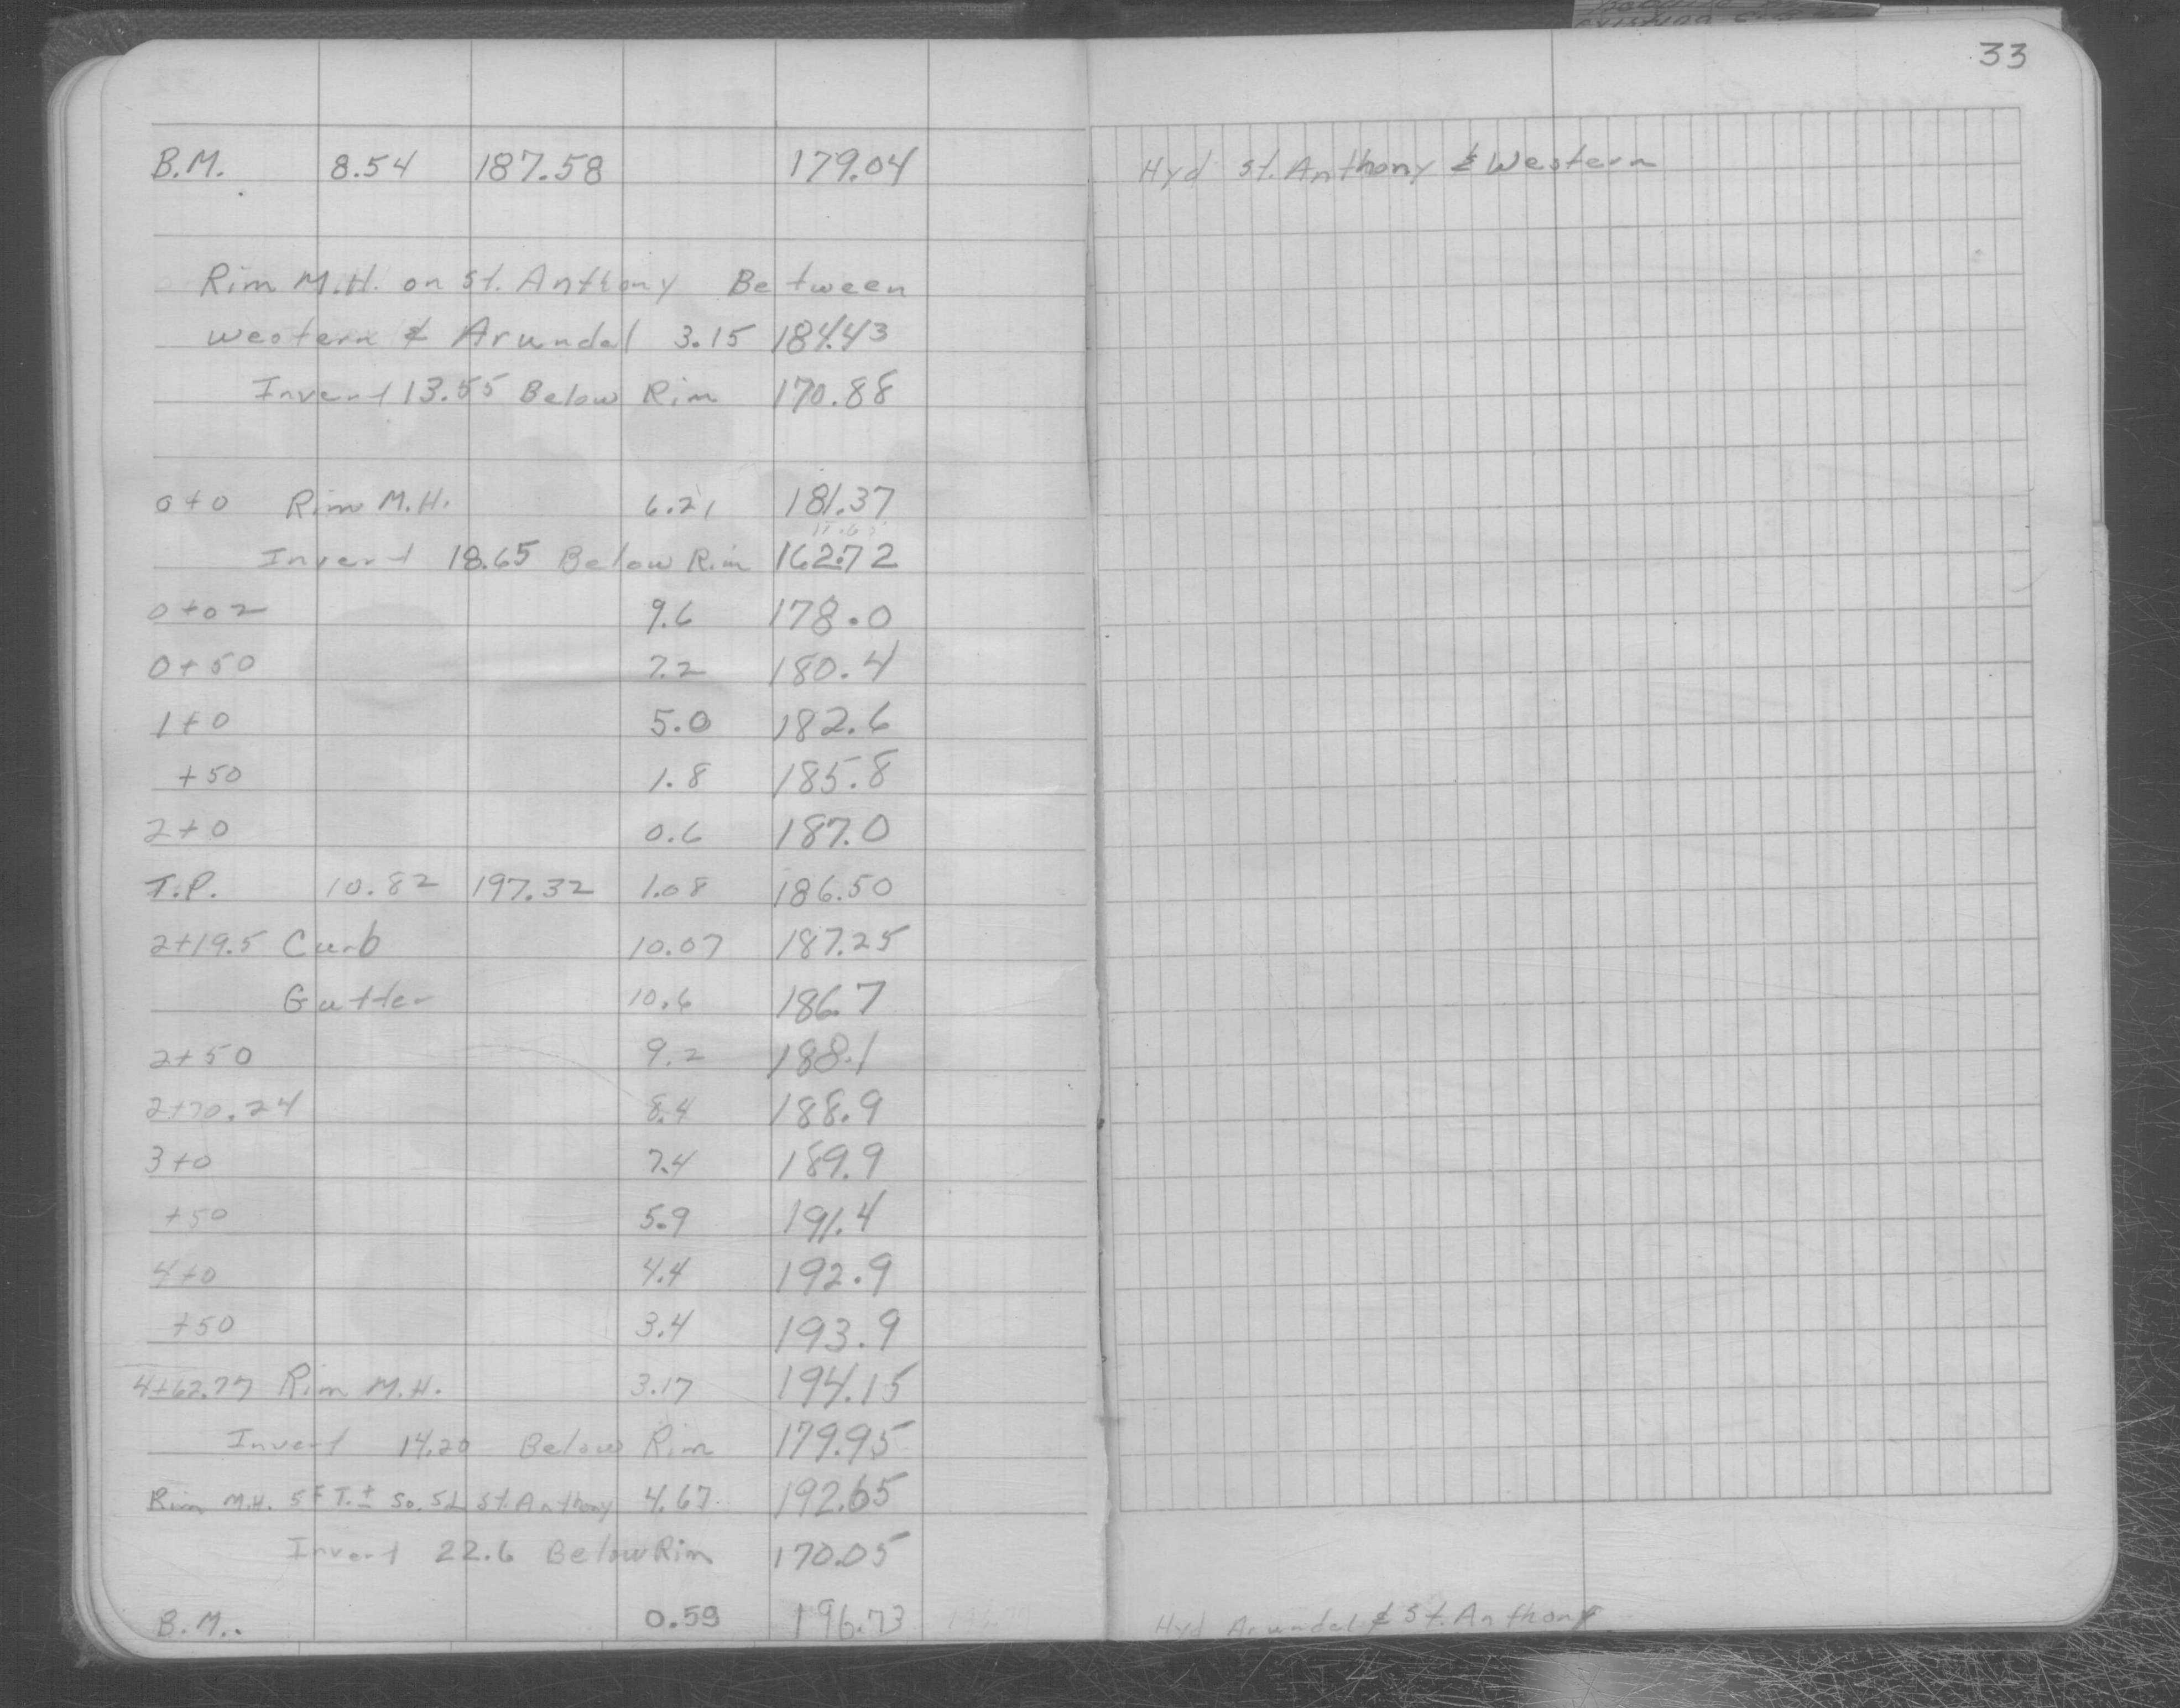 33
B.M. 8.54 187.58 179.04 Hyd St. Anthony & Western
Rim M.H. on St. Anthony Between
Western & Arundel 3.15 184.43
Invert 13.55 Below Rim 170.88
0+0 Rim M.H. 6.21 181.37
Invert 18.65 Below Rim 162.72
0+02 9.6 178.0
0+50 7.2 180.4
1+0 5.0 182.6
+50 1.8 185.8
2+0 0.6 187.0
T.P. 10.82 197.32 1.08 186.50
2+19.5 Curb 10.07 187.25
Gutter 10.6 186.7
2+50 9.2 188.1
2+70.24 8.4 188.9
3+0 7.4 189.9
+50 5.9 191.4
4+0 4.4 192.9
+50 3.4 193.9
4+62.77 Rim M.H. 3.17 194.15
Invert 14.20 Below Rim 179.95
Rim M.H. 5 FT.± So. SL St. Anthony 4.67 192.65
Invert 22.6 Below Rim 170.05
B.M. 0.59 196.73 Hyd Arundel & St. Anthony